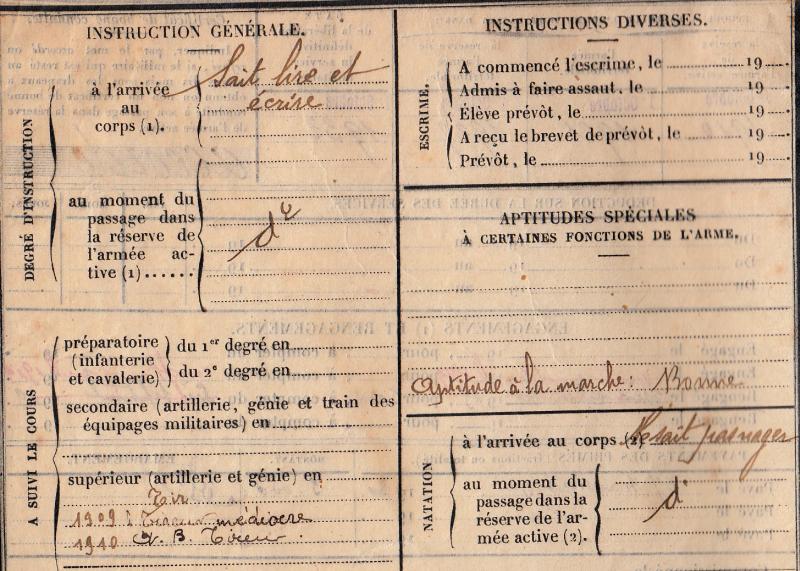 INSTRUCTION GÉNÉRALE.
DEGRÉ D'INSTRUCTION
à l'arrivée
au
corps (1).
Sait lire et
écrire
au moment du
passage dans
la réserve de
l'armée ac-
tive (1)......
do
A SUIVI LE COURS
préparatoire
(infanterie
et cavalerie)
du 1er degré en
du 2e degré en
secondaire (artillerie, génie et train des
équipages militaires) en
supérieur (artillerie et génie) en
Tir
1909 : Tireur médiocre
1910 T. B. Tireur
INSTRUCTIONS DIVERSES.
ESCRIME.
A commencé l'escrime, le 19
Admis à faire assaut, le 19
Élève prévôt, le 19
A reçu le brevet de prévôt, le 19
Prévôt, le 19
APTITUDES SPÉCIALES
À CERTAINES FONCTIONS DE L'ARME.
Aptitude à la marche : Bonne
NATATION
à l'arrivée au corps (2) sait pas nager
au moment du
passage dans la
réserve de l'ar-
mée active (2).
d°